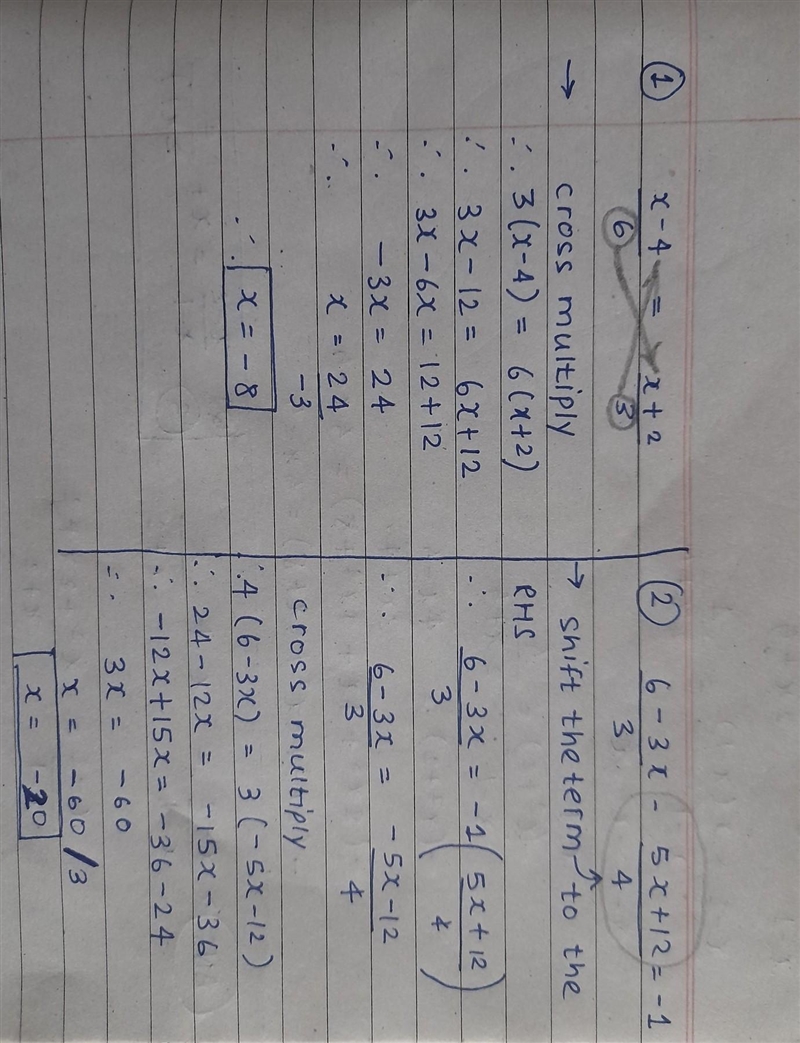 ①
x-4/6 = x+2/3
→ cross multiply
∴ 3(x-4) = 6(x+2)
∴ 3x-12 = 6x+12
∴ 3x-6x = 12+12
∴ -3x = 24
∴ x = 24/-3
∴ x = -8
②
6-3x/3 - 5x+12/4 = -1
→ shift the term to the
RHS
∴ 6-3x/3 = -1(5x+12/4)
∴ 6-3x/3 = -5x-12/4
cross multiply.
∴ 4(6-3x) = 3(-5x-12)
∴ 24-12x = -15x-36
∴ -12x+15x = -36-24
∴ 3x = -60
x = -60/3
x = -20